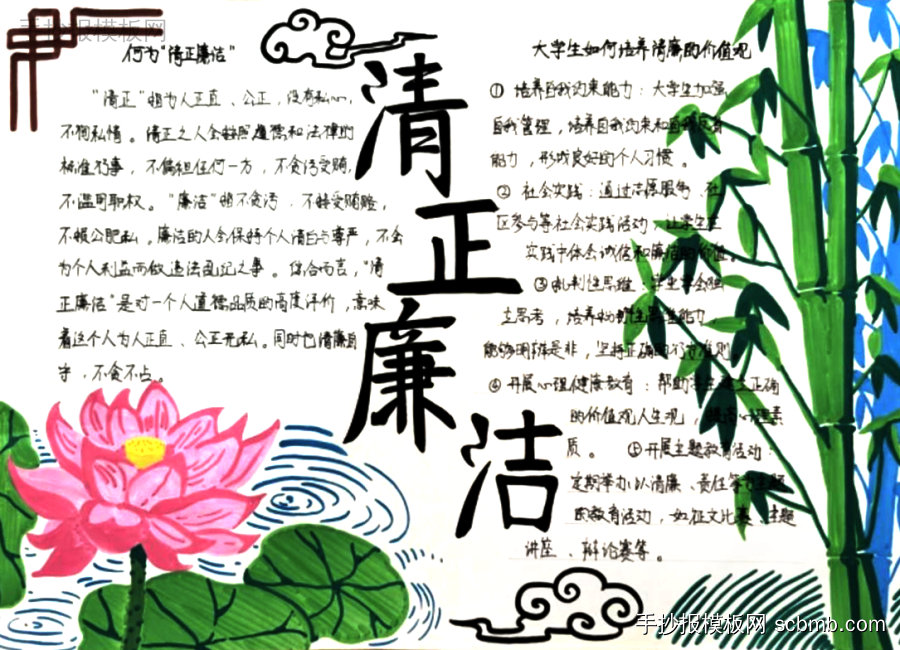 手抄报模板网
何为“清正廉洁”
“清正”指为人正直、公正，没有私心，
不徇私情。清正之人会按照道德和法律的
标准行事，不偏袒任何一方，不贪污受贿，
不滥用职权。“廉洁”指不贪污、不接受贿赂，
不损公肥私。廉洁的人会保持个人清白与尊严，不会
为个人利益而做违法乱纪之事。综合而言，“清
正廉洁”是对一个人道德品质的高度评价，意味
着这个人为人正直、公正无私。同时也清廉自
守，不贪不占。
清
正
廉
洁
大学生如何培养清廉的价值观
① 培养自我约束能力：大学生加强
自我管理，培养自我约束和自我反省
能力，形成良好的个人习惯。
② 社会实践：通过志愿服务、社
区参与等社会实践活动，让学生在
实践中体会诚信和廉洁的价值。
③批判性思维：学生学会独
立思考，培养 能力，
能够明辨是非，坚持正确的 准则。
④ 开展心理健康教育：帮助学生建立正确
的价值观人生观，提高心理素
质。 ①开展主题教育活动：
定期举办以清廉、责任等为主题
的教育活动，如征文比赛、主题
讲座、辩论赛等。
手抄报模板网 scbmb.com